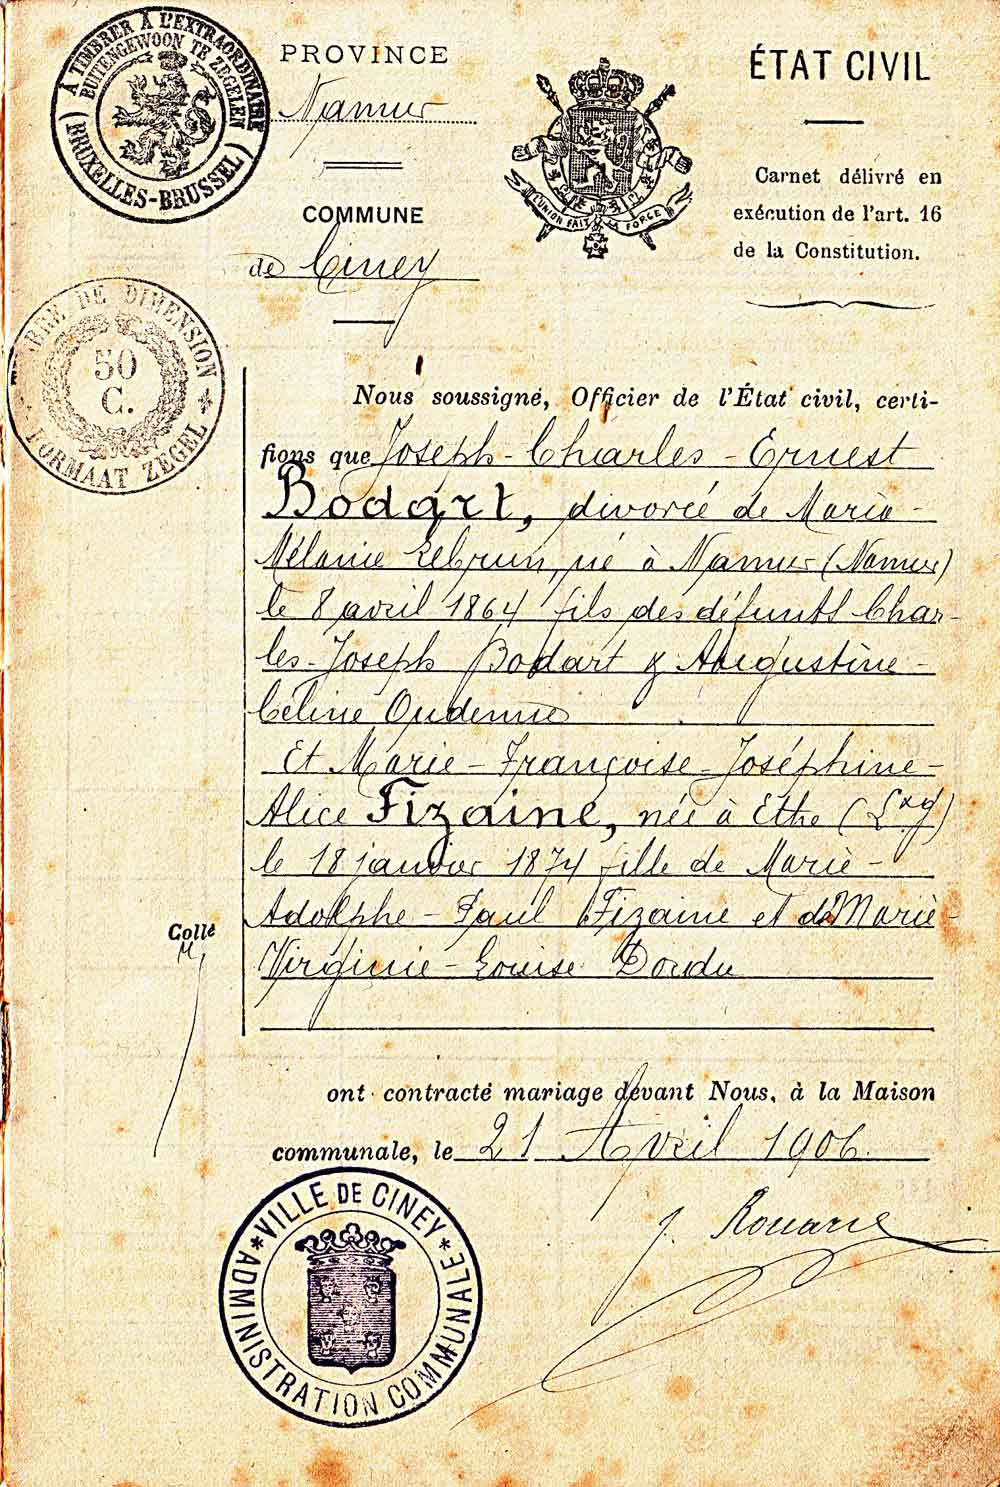 À TIMBRER À L'EXTRAORDINAIRE
BUITENGEWOON TE ZEGELEN
(BRUXELLES-BRUSSEL)
PROVINCE
Namur
COMMUNE
de Ciney
L'UNION FAIT LA FORCE
ÉTAT CIVIL
Carnet délivré en
exécution de l'art. 16
de la Constitution.
TIMBRE DE DIMENSION
50
C.
FORMAAT ZEGEL
Nous soussigné, Officier de l'État civil, certi-
fions que Joseph - Charles - Ernest
Bodart, divorcé de Marie -
Mélanie Lebrun, né à Namur (Namur)
le 8 avril 1864 fils des défunts Char-
les-Joseph Bodart & Augustine -
Céline Oudenne
Et Marie - Françoise - Joséphine -
Alice Fizaine, née à Ethe (Lxg)
le 18 janvier 1874 fille de Marie -
Adolphe - Paul Fizaine et de Marie -
Virginie - Louise Doudu
Collé
ont contracté mariage devant Nous, à la Maison
communale, le 21 Avril 1906.
VILLE DE CINEY
ADMINISTRATION COMMUNALE